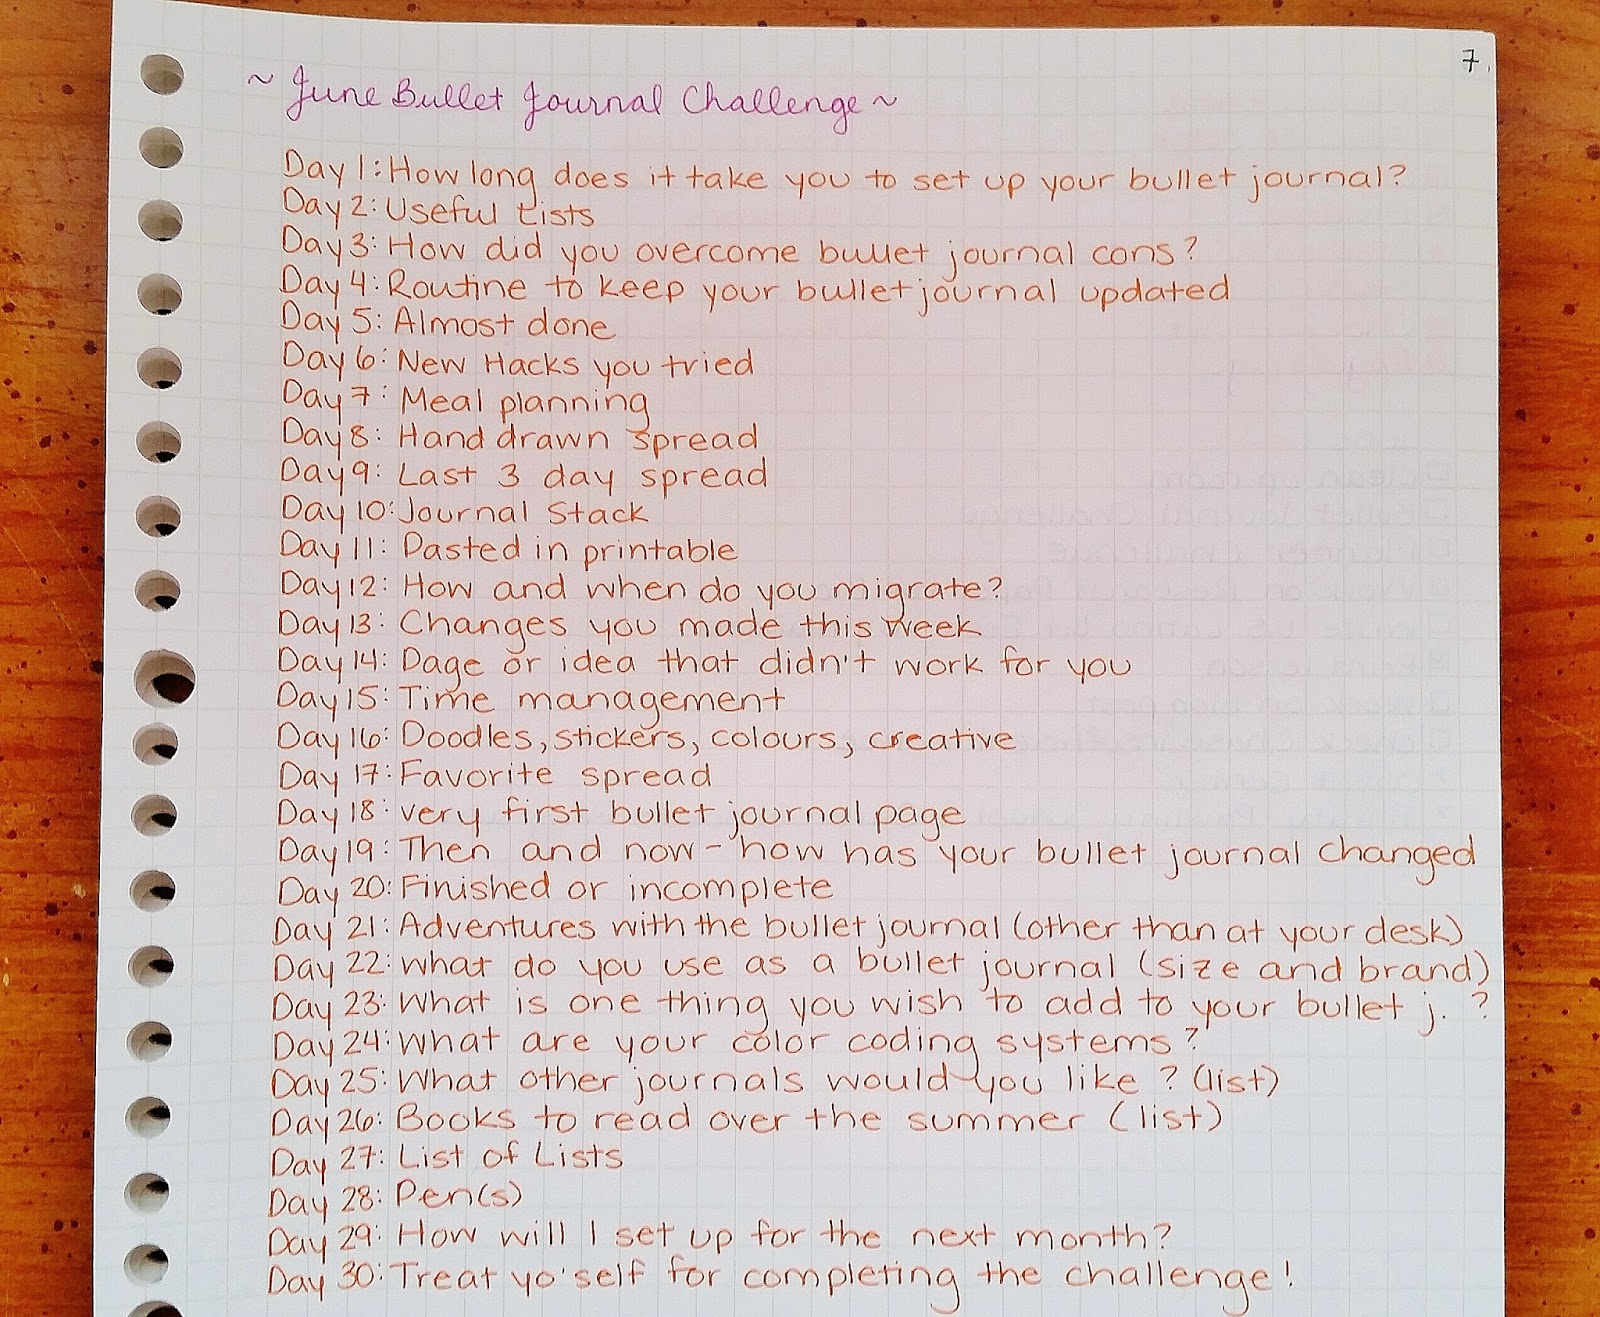 7.
~ June Bullet Journal Challenge ~
Day 1: How long does it take you to set up your bullet journal?
Day 2: Useful Lists
Day 3: How did you overcome bullet journal cons?
Day 4: Routine to keep your bullet journal updated
Day 5: Almost done
Day 6: New Hacks you tried
Day 7: Meal planning
Day 8: Hand drawn spread
Day 9: Last 3 day spread
Day 10: Journal Stack
Day 11: Pasted in printable
Day 12: How and when do you migrate?
Day 13: Changes you made this week
Day 14: Page or idea that didn't work for you
Day 15: Time management
Day 16: Doodles, stickers, colours, creative
Day 17: Favorite spread
Day 18: very first bullet journal page
Day 19: Then and now - how has your bullet journal changed
Day 20: Finished or incomplete
Day 21: Adventures with the bullet journal (other than at your desk)
Day 22: What do you use as a bullet journal (size and brand)
Day 23: What is one thing you wish to add to your bullet j. ?
Day 24: What are your color coding systems?
Day 25: What other journals would you like? (list)
Day 26: Books to read over the summer (list)
Day 27: List of Lists
Day 28: Pen(s)
Day 29: How will I set up for the next month?
Day 30: Treat yo'self for completing the challenge!